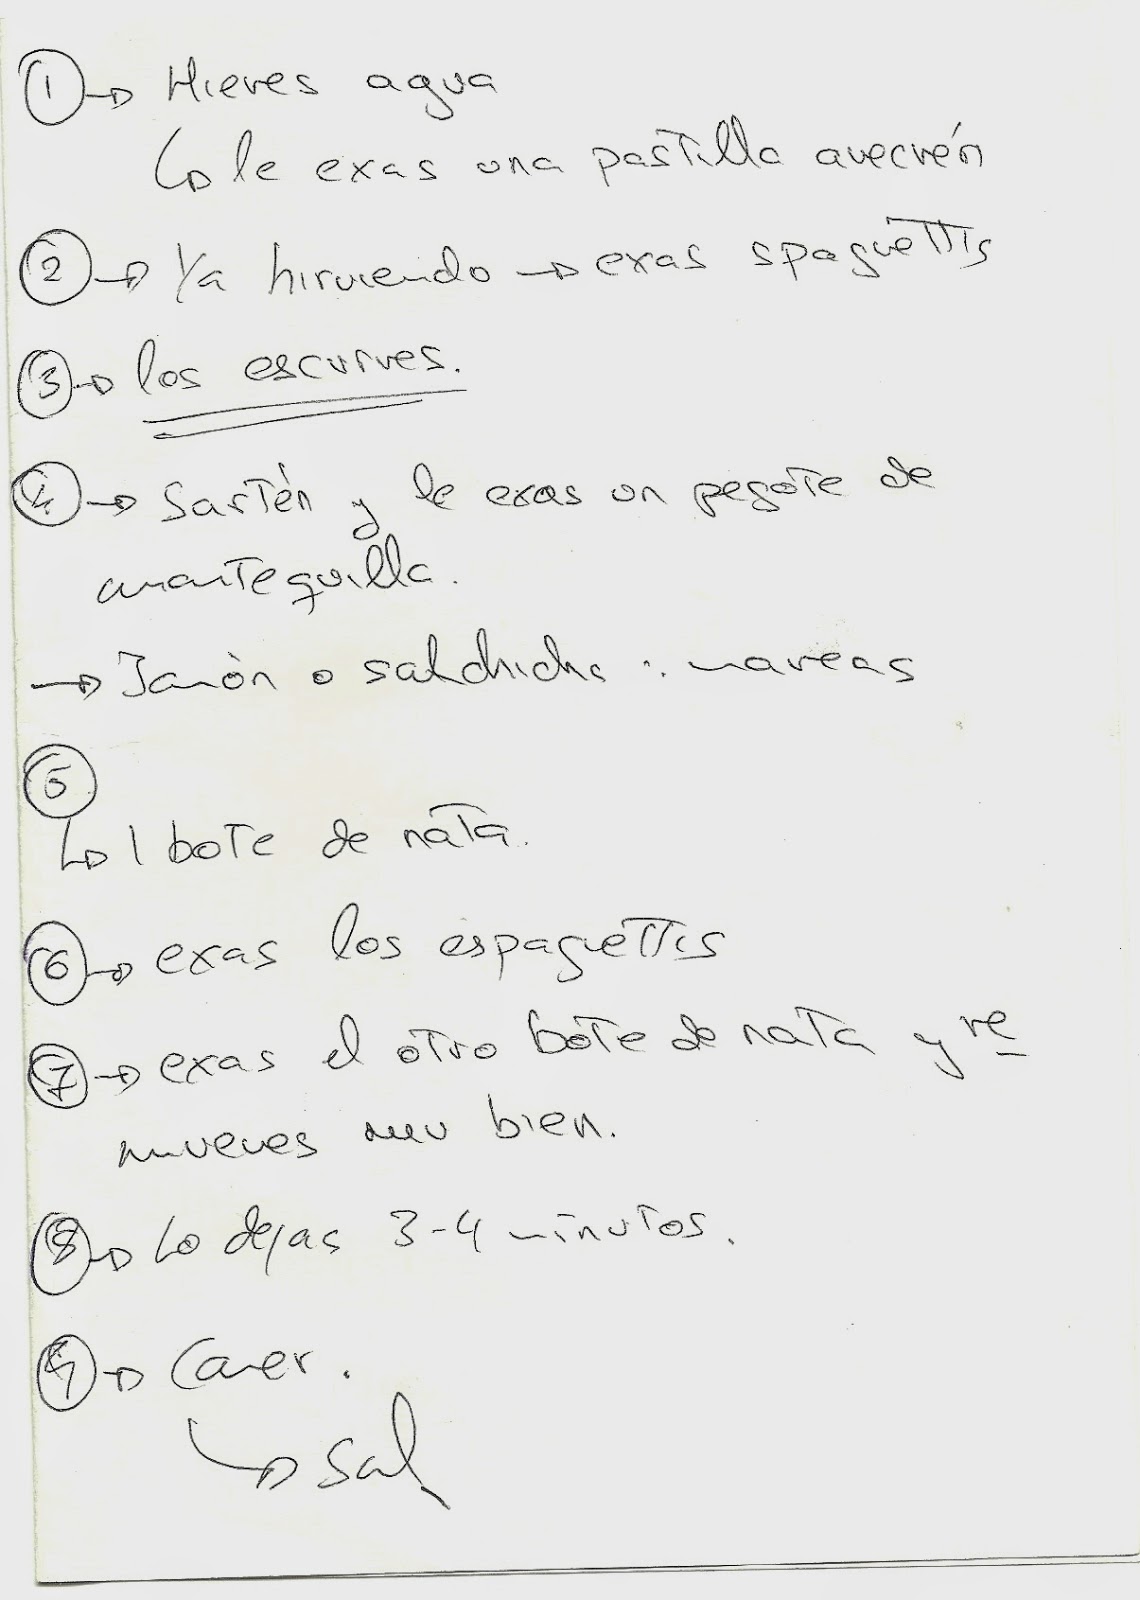 1 → Hierves agua
↳ le exas una pastilla avecrén
2 → Ya hirviendo → exas spaguèttis
3 → los escurres.
4 → Sartén y le exas un pegote de
mantequilla.
→ Jamòn o salchicha : mareas
5
↳ 1 bote de nata.
6 → exas los espaguèttis
7 → exas el otro bote de nata y re
mueves muy bien.
8 → Lo dejas 3-4 minutos.
9 → Comer.
↳ sal